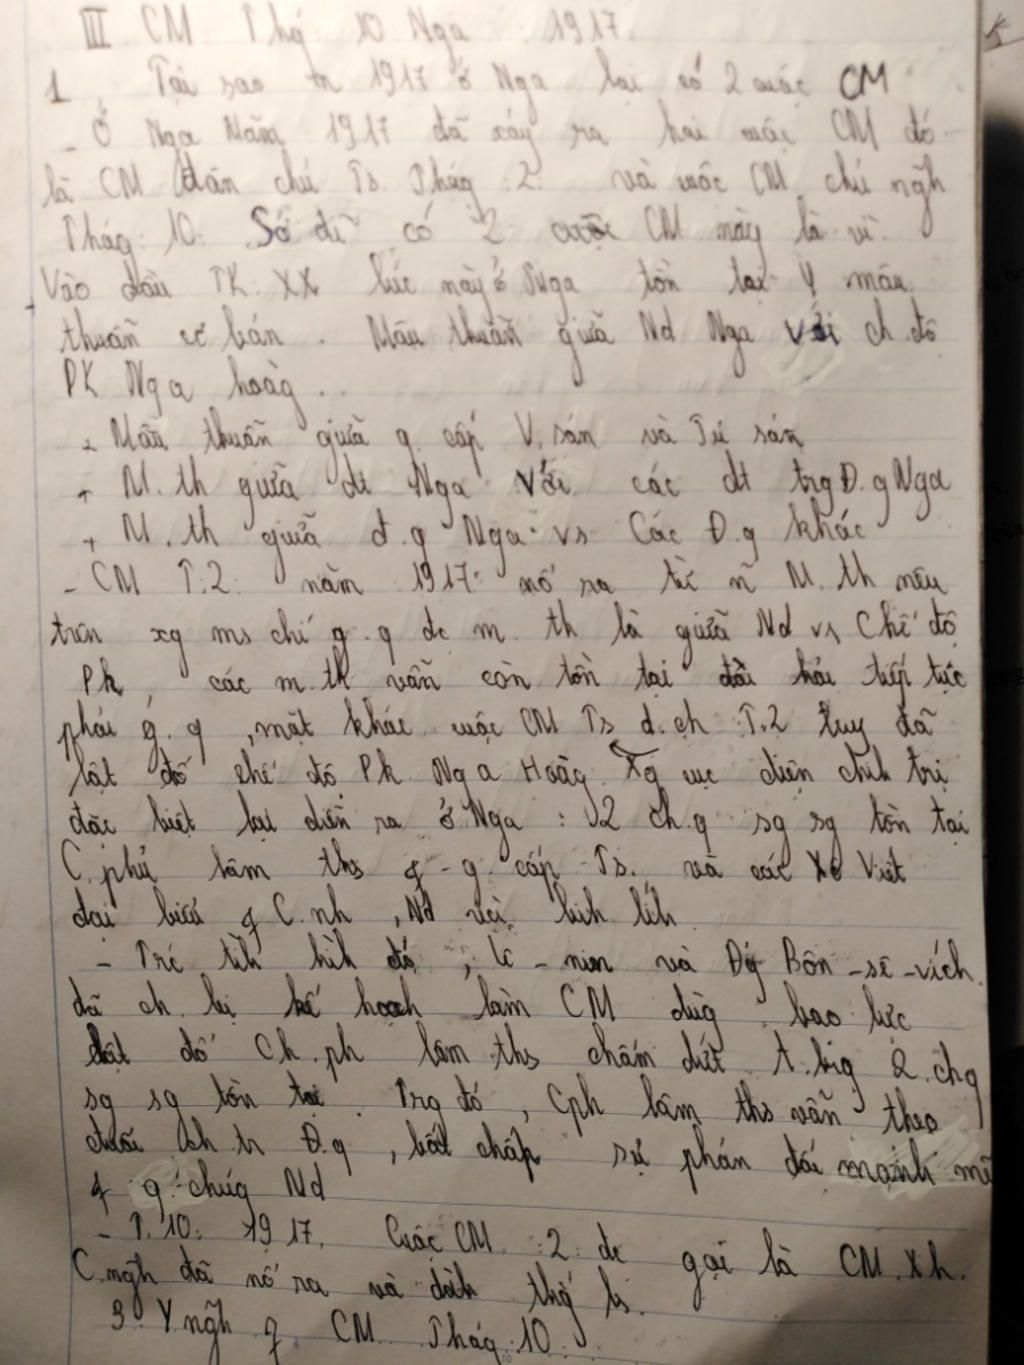 III CM Thág 10 Nga 1917.
1. Tại sao 1917 ở Nga lại có 2 cuộc CM
- Ở Nga Năm 1917 đã xảy ra hai cuộc CM đó
là CM dân chủ Ts Thág 2 và cuộc CM chủ ngh
Thág 10. Sở dĩ có 2 cuộc CM này là vì.
Vào đầu TK XX lúc này ở Nga tồn tại 4 mâu
thuẫn cơ bản. Mâu thuẫn giữa Nd Nga với ch.độ
PK Nga hoàg..
+ Mâu thuẫn giữa g. cấp V.sản và Tư sản
+ M.th giữa dt Nga Với các dt trg Đ.q Nga
+ M.th giữa đ.q Nga vs Các Đ.q khác
- CM T.2 năm 1917 nổ ra từ n~ M.th nêu
trên xg ms chỉ g.q dc m.th là giữa Nd vs Chế độ
Pk, các m.th vẫn còn tồn tại đòi hỏi tiếp tục
phải g.q, mặt khác cuộc CM Ts d.ch T.2 tuy đã
lật đổ chế độ Pk Nga Hoàg Xg cục diện chíh trị
đặc biệt lại diễn ra ở Nga : 2 ch.q sg sg tồn tại
C.phủ lâm ths of g.cấp Ts. và các Xô Viết
đại biểu of C.nh, Nd và bih líh
- Trc tìh hìh đó, Lê-nin và Đg Bôn-sê-vích
đã ch.bị kế hoạch làm CM dùg bạo lực
lật đổ Ch.ph lâm ths chấm dứt t.trg 2 chq
sg sg tồn tại. Trg đó, Cph lâm ths vẫn theo
đuổi ch.tr Đ.q, bất chấp sự phản đối mạnh mẽ
of q.chúg Nd
- T.10. 1917. Cuộc CM 2 dc gọi là CM.Xh.
C.ngh đã nổ ra và dàh thg ls.
3 Ý ngh of CM Thág 10.